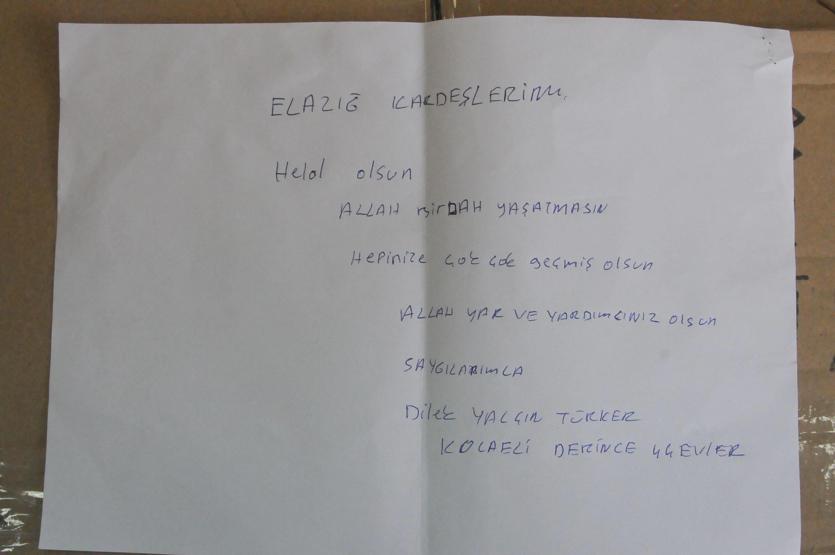 ELAZIĞ KARDEŞLERİM
Helal olsun
ALLAH BİRDAH YAŞATMASIN
Hepinize çok çok geçmiş olsun
ALLAH YAR VE YARDIMCINIZ olsun
SAYGILARIMLA
Dilek YALÇIN TÜRKER
KOCAELİ DERİNCE ÜÇEVLER